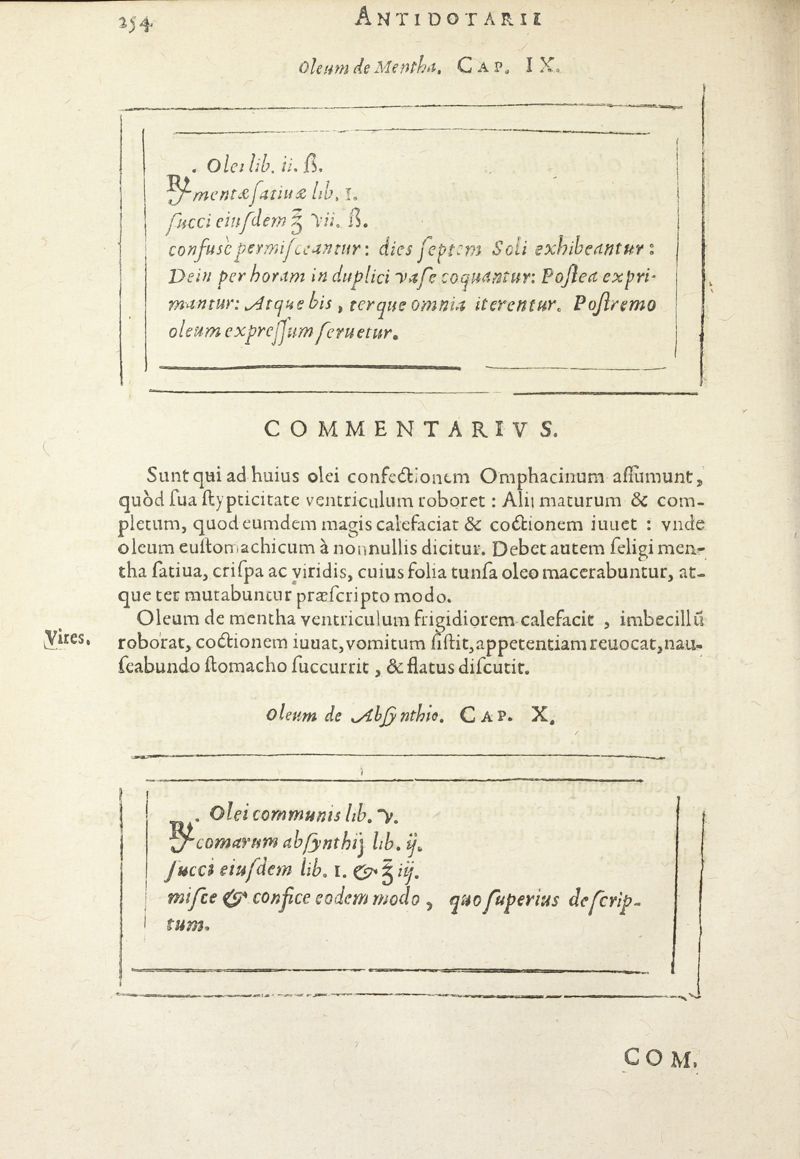 254. ANTIDOTARII
Oleum de Mentha. CAP. IX.
℞. Olei lib. ii. ß.
mentæ ſatiuæ lib. I.
ſucci eiuſdem ℥ vii. ß.
confuſe permiſceantur: dies ſeptem Soli exhibeantur:
Dein per horam in duplici vaſe coquantur: Poſtea expri-
mantur: Atque bis, terque omnia iterentur. Poſtremo
oleum expreſſum ſeruetur.
COMMENTARIVS.
Sunt qui ad huius olei confectionem Omphacinum aſſumunt,
quòd ſua ſtypticitate ventriculum roboret: Alii maturum & com-
pletum, quod eumdem magis calefaciat & coctionem iuuet : vnde
oleum euſtomachicum à nonnullis dicitur. Debet autem ſeligi men-
tha ſatiua, criſpa ac viridis, cuius folia tunſa oleo macerabuntur, at-
que ter mutabuntur præſcripto modo.
Oleum de mentha ventriculum frigidiorem calefacit , imbecillū
Vires. roborat, coctionem iuuat, vomitum ſiſtit, appetentiam reuocat, nau-
ſeabundo ſtomacho ſuccurrit , & flatus diſcutit.
Oleum de Abſynthio. CAP. X.
℞. Olei communis lib. v.
comarum abſynthij lib. ij.
ſucci eiuſdem lib. I. & ℥ iij.
miſce & confice eodem modo , quo ſuperius deſcrip-
tum.
COM.